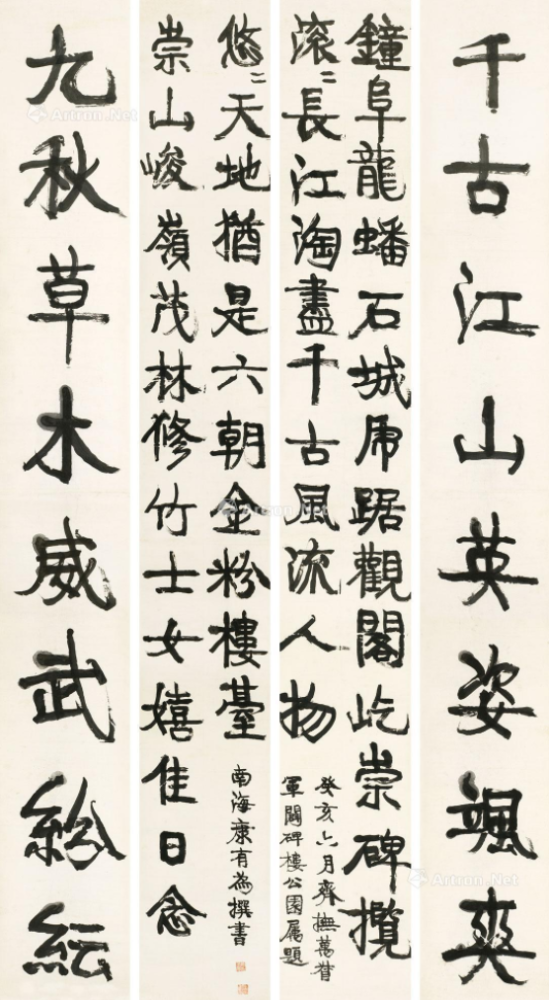 千古江山英姿颯爽
鐘阜龍蟠石城虎踞觀閣屹崇碑攬
滾〻長江淘盡千古風流人物
癸亥六月齊撫萬督
軍闢碑樓公園屬題
崇山峻嶺茂林修竹士女嬉佳日念
悠〻天地猶是六朝金粉樓臺
南海康有為撰書
九秋草木威武紛紜
Artron.Net
Artron.Net
Artron.Net
Artron.Net